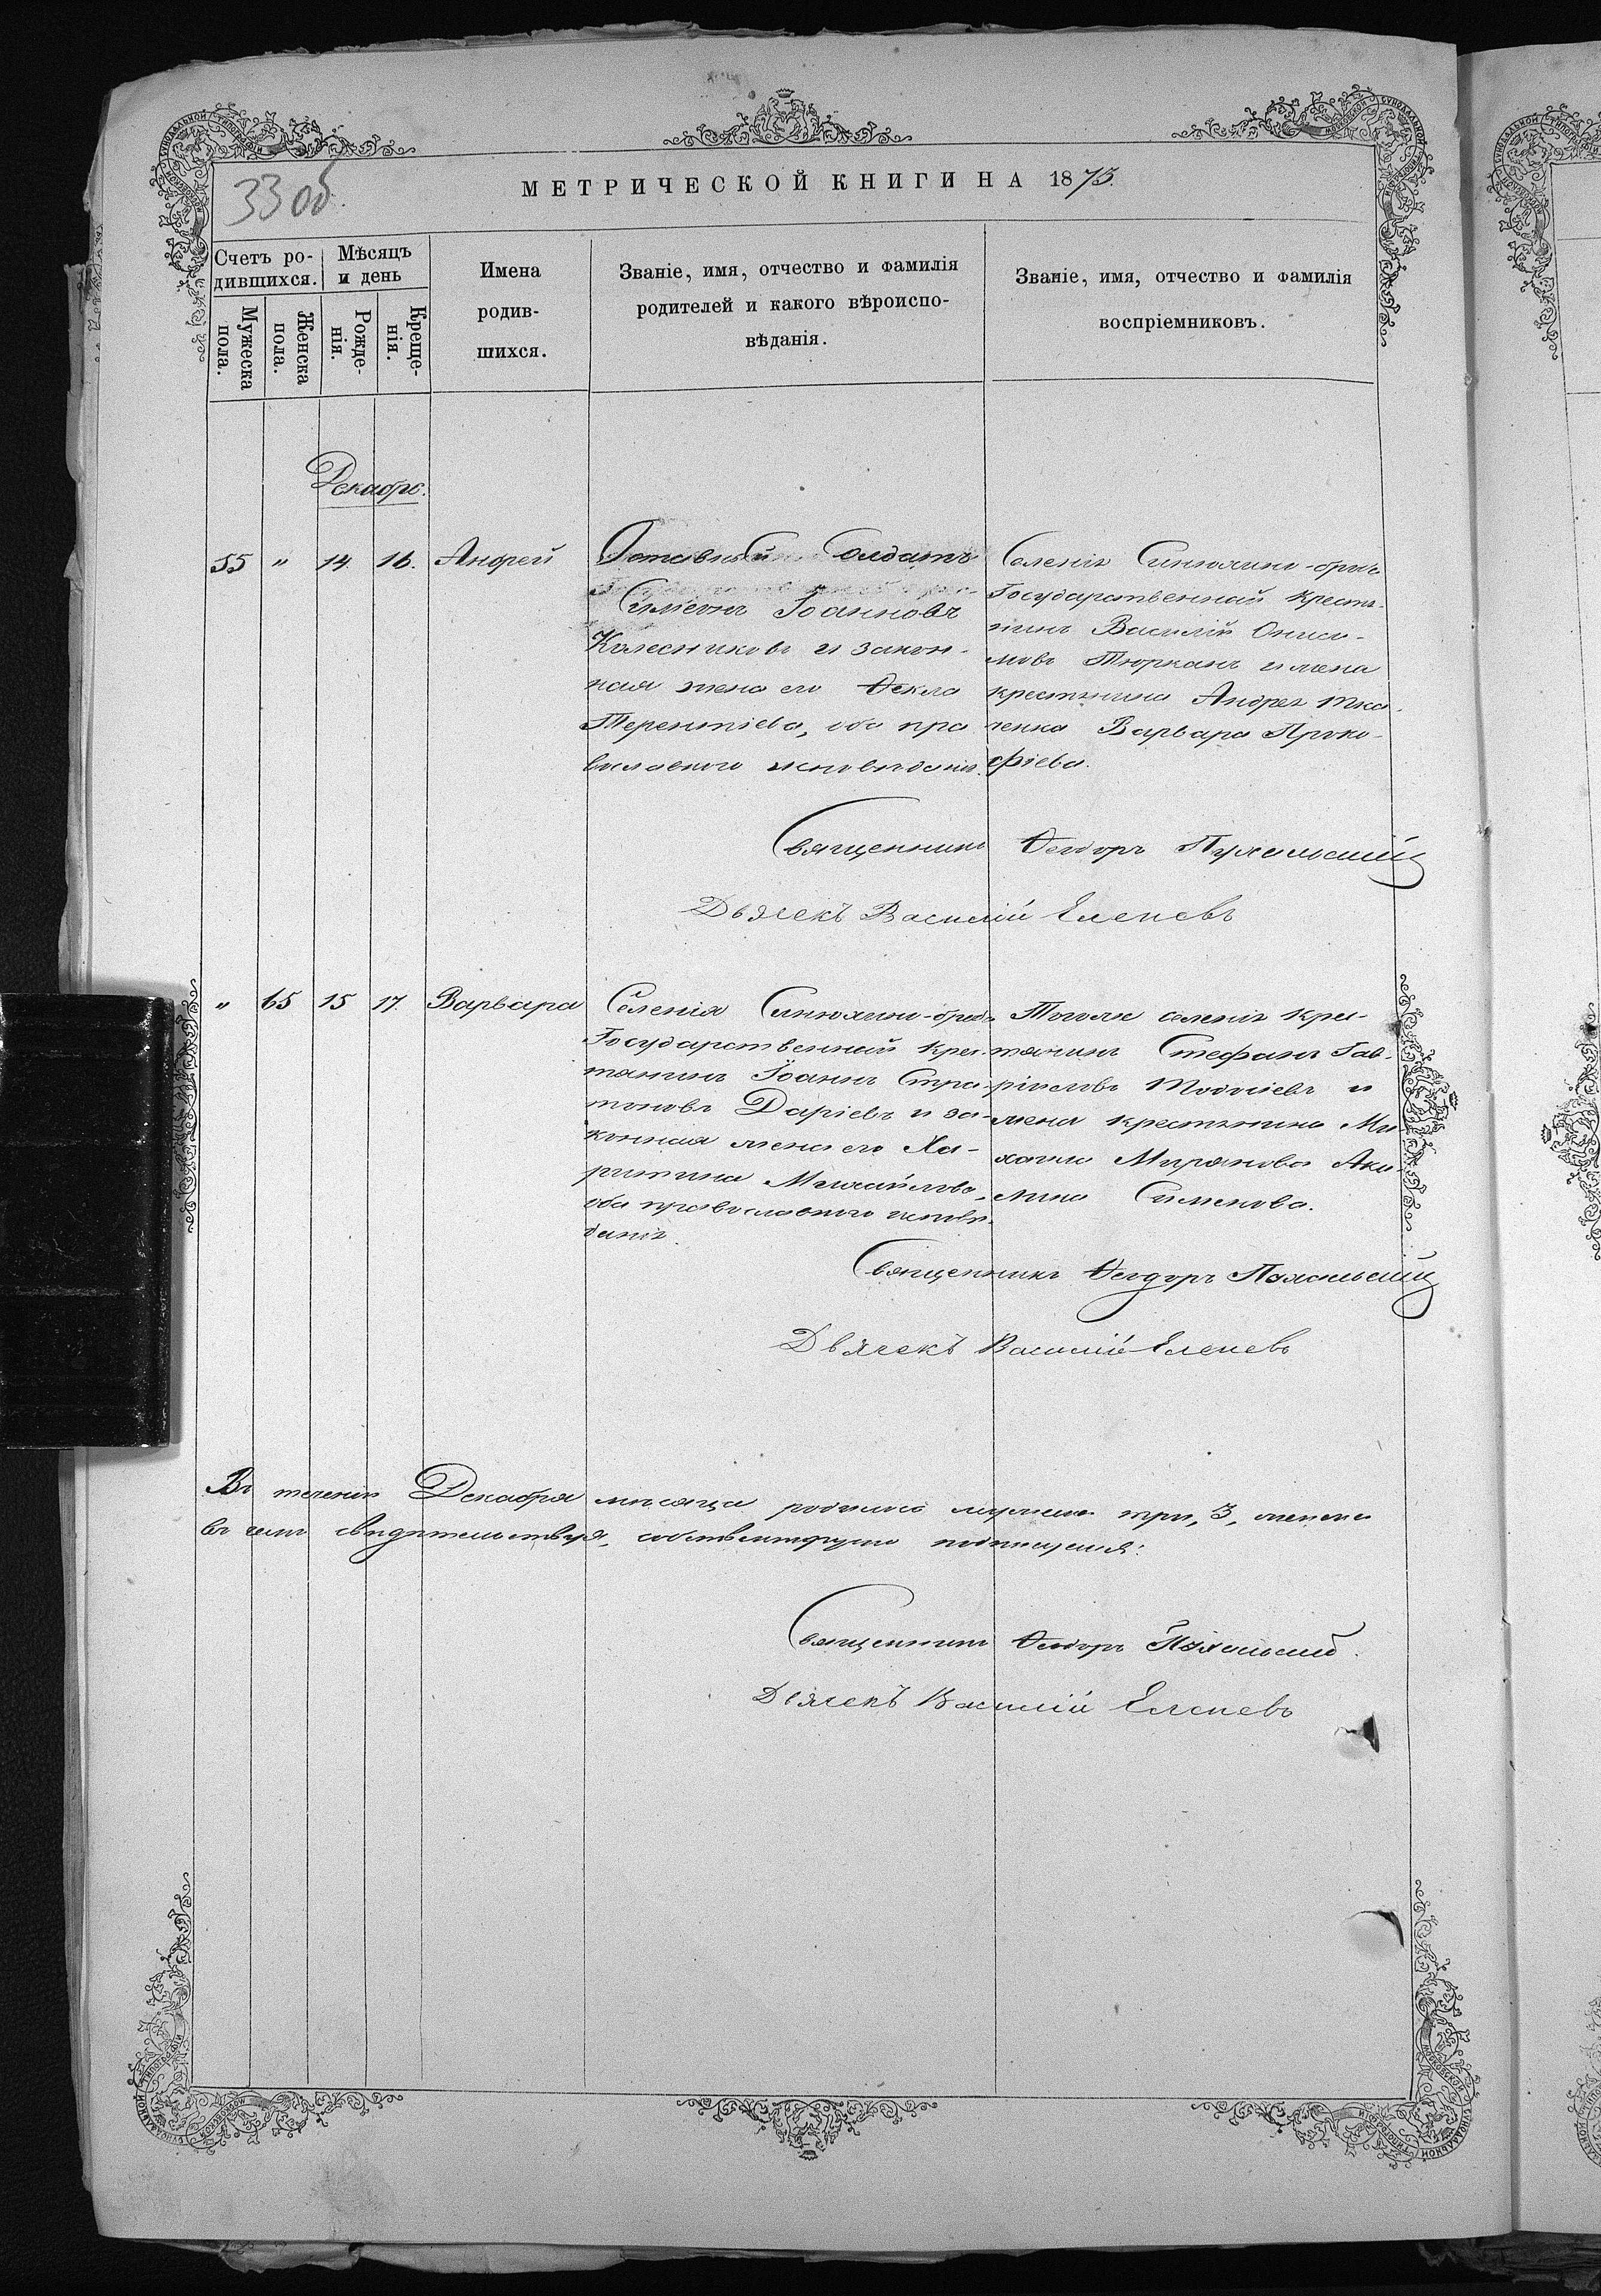 33 об.
МЕТРИЧЕСКОЙ КНИГИ НА 1875.
Счетъ ро-
дившихся.
Мѣсяцъ
и день
Мужеска
пола.
Женска
пола.
Рожде-
нія.
Креще-
нія.
Имена
родив-
шихся.
Званіе, имя, отчество и фамилія
родителей и какого вѣроиспо-
вѣданія.
Званіе, имя, отчество и фамилія
воспріемниковъ.
Декабрь.
55 " 14. 16. Андрей
Отставный Солдатъ
Симеонъ Іоанновъ
Колесниковъ и закон-
ная жена его Ѳекла
Терентіева, оба пра
вославного исповѣданія.
Селенія Синюхино-брод
Государственный Кресть-
янинъ Василій Ониси-
мовъ Тюрканъ и жена
крестьянина Андрея Тка-
ченка Варвара Проко-
фіева.
Священникъ Ѳеодоръ
Дьячекъ Василій Еленевъ
" 65 15 17. Варвара
Селенія Синюхино-брод
Государственный Крес-
тянинъ Іоаннъ Стра-
тоновъ Даріевъ и за-
конная жена его Ха-
ритина Михайлова,
оба православного исповѣ-
данія.
Тогоже селенія Крес-
тянинъ Стефанъ Гав-
ріиловъ и
жена крестьянина Ми-
хаила Миронова Аку-
лина Сименова.
Священникъ Ѳеодоръ
Дьячекъ Василій Еленевъ
Въ теченіи Декабря мѣсяца родилось мужеска три, 3, женска
въ чемъ свидѣтельствуя, собственноручно подписуемся:
Священникъ Ѳеодоръ
Дьячекъ Василій Еленевъ